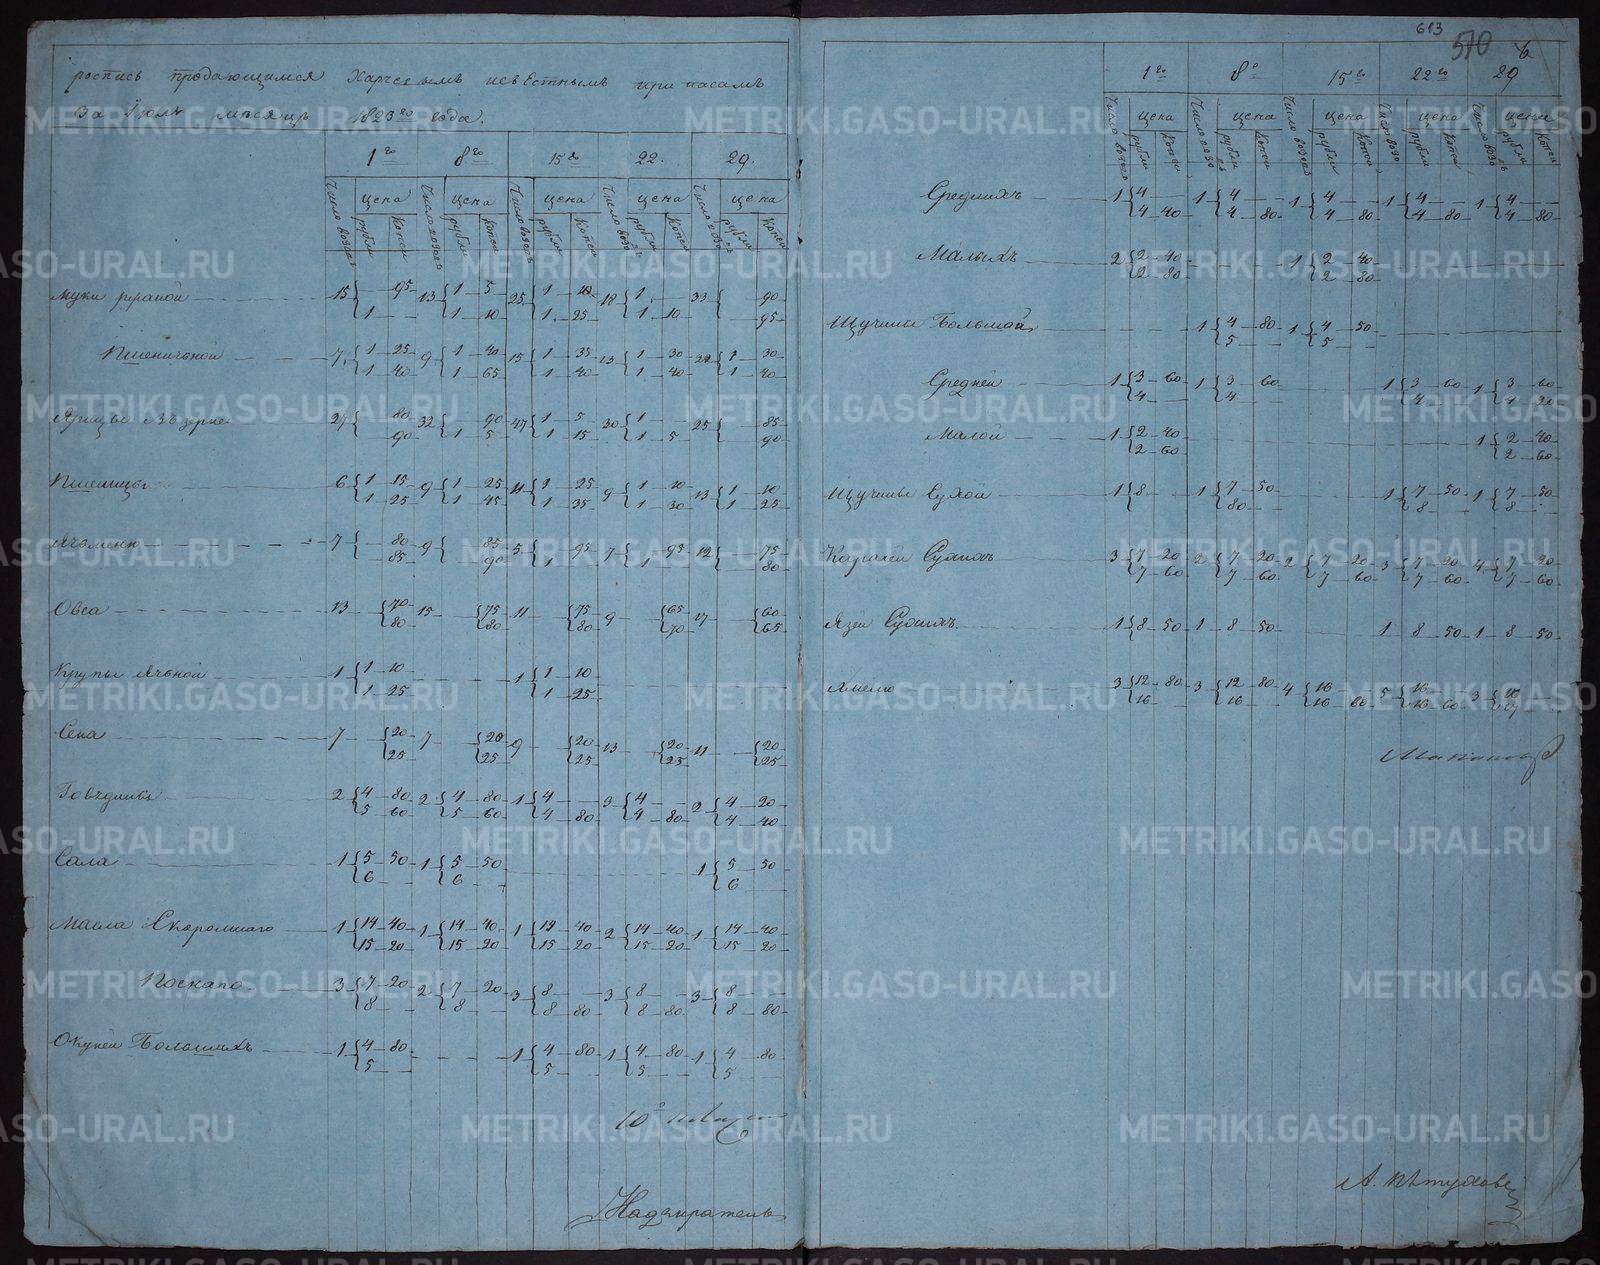 613
510
6
роспись продающимся Харчевымъ исъЕстнымъ припасамъ
За Июль месяцъ 1823го года.
1го 8го 15го 22. 29.
Число возовъ цена рубли Копеи Число возовъ цена рубли Копеи Число возовъ цена рубли Копеи Число возовъ цена рубли Копеи Число возовъ цена рубли Копеи
Муки ржаной 15 { 95 13 { 1 5 25 { 1 10 18 { 1 33 { 90
1 1 10 1 25 1 10 95
Пшеничьной 7 { 1 25 9 { 1 40 15 { 1 35 13 { 1 30 22 { 1 30
1 40 1 65 1 40 1 40 1 40
Ярицы Въ зерне 27 { 80 32 { 90 47 { 1 5 30 { 1 25 { 85
90 1 5 1 15 1 5 90
Пшеницы 6 { 1 15 9 { 1 25 11 { 1 25 9 { 1 10 13 { 1 10
1 25 1 45 1 35 1 30 1 25
Ячьменю 7 { 80 9 { 85 5 { 95 7 { 95 12 { 75
85 90 1 1 80
Овса 13 { 70 15 { 75 11 { 75 9 { 65 17 { 60
80 80 80 70 65
Крупы Ячьной 1 { 1 10 1 { 1 10
1 25 1 25
Сена 7 { 20 7 { 20 9 { 20 13 { 20 11 { 20
25 25 25 25 25
Говядины 2 { 4 80 2 { 4 80 1 { 4 3 { 4 2 { 4 20
5 60 5 60 4 80 4 80 4 40
Сала 1 { 5 50 1 { 5 50 1 { 5 50
6 6 6
Масла Скоромнаго 1 { 14 40 1 { 14 40 1 { 14 40 2 { 14 40 1 { 14 40
15 20 15 20 15 20 15 20 15 20
Поснаго 3 { 7 20 2 { 7 20 3 { 8 3 { 8 3 { 8
8 8 8 80 8 80 8 80
Окуней Большихъ 1 { 4 80 1 { 4 80 1 { 4 80 1 { 4 80
5 5 5 5
Надзиратель
1го 8го 15го 22го 29
Число возовъ цена рубли Копеи Число возовъ цена рубли Копеи Число возовъ цена рубли Копеи Число возовъ цена рубли Копеи Число возовъ цена рубли Копеи
Среднихъ 1 { 4 1 { 4 1 { 4 1 { 4 1 { 4
4 40 4 80 4 80 4 80 4 80
Малыхъ 2 { 2 40 1 { 2 40
2 80 2 80
Щучины Большой 1 { 4 80 1 { 4 50
5 5
Средней 1 { 3 60 1 { 3 60 1 { 3 60 1 { 3 60
4 4 4 4 20
Малой 1 { 2 40 1 { 2 40
2 60 2 60
Щучины Сухой 1 { 8 1 { 7 50 1 { 7 50 1 { 7 50
80 8 8
Карасей Сухихъ 3 { 7 20 2 { 7 20 2 { 7 20 3 { 7 20 4 { 7 20
7 60 7 60 7 60 7 60 7 60
Язей Сухихъ 1 { 8 50 1 8 50 1 8 50 1 8 50
Хмелю 3 { 12 80 3 { 12 80 4 { 16 5 { 16 3 { 16
16 16 16 80 16 60
METRIKI.GASO-URAL.RU